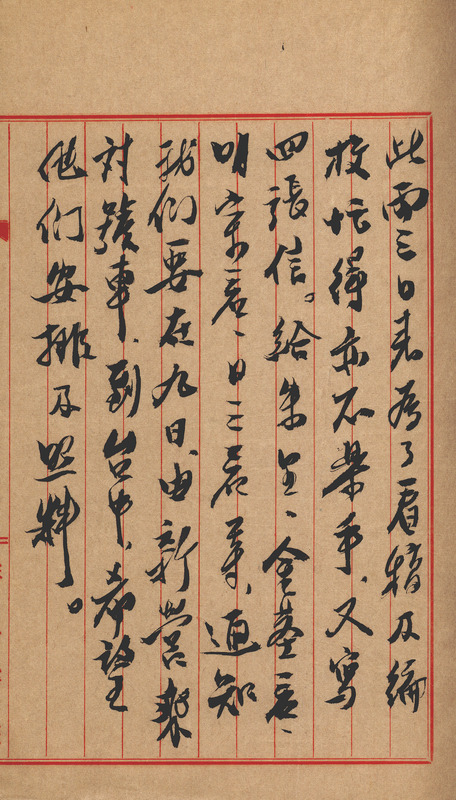 此兩三日來為了看稿及編
校忙得亦不樂乎、又寫
四張信。給朱、金基
等、通知
我們要在九日、由新營乘
対號車、到台中、希望
他們安排及照料。